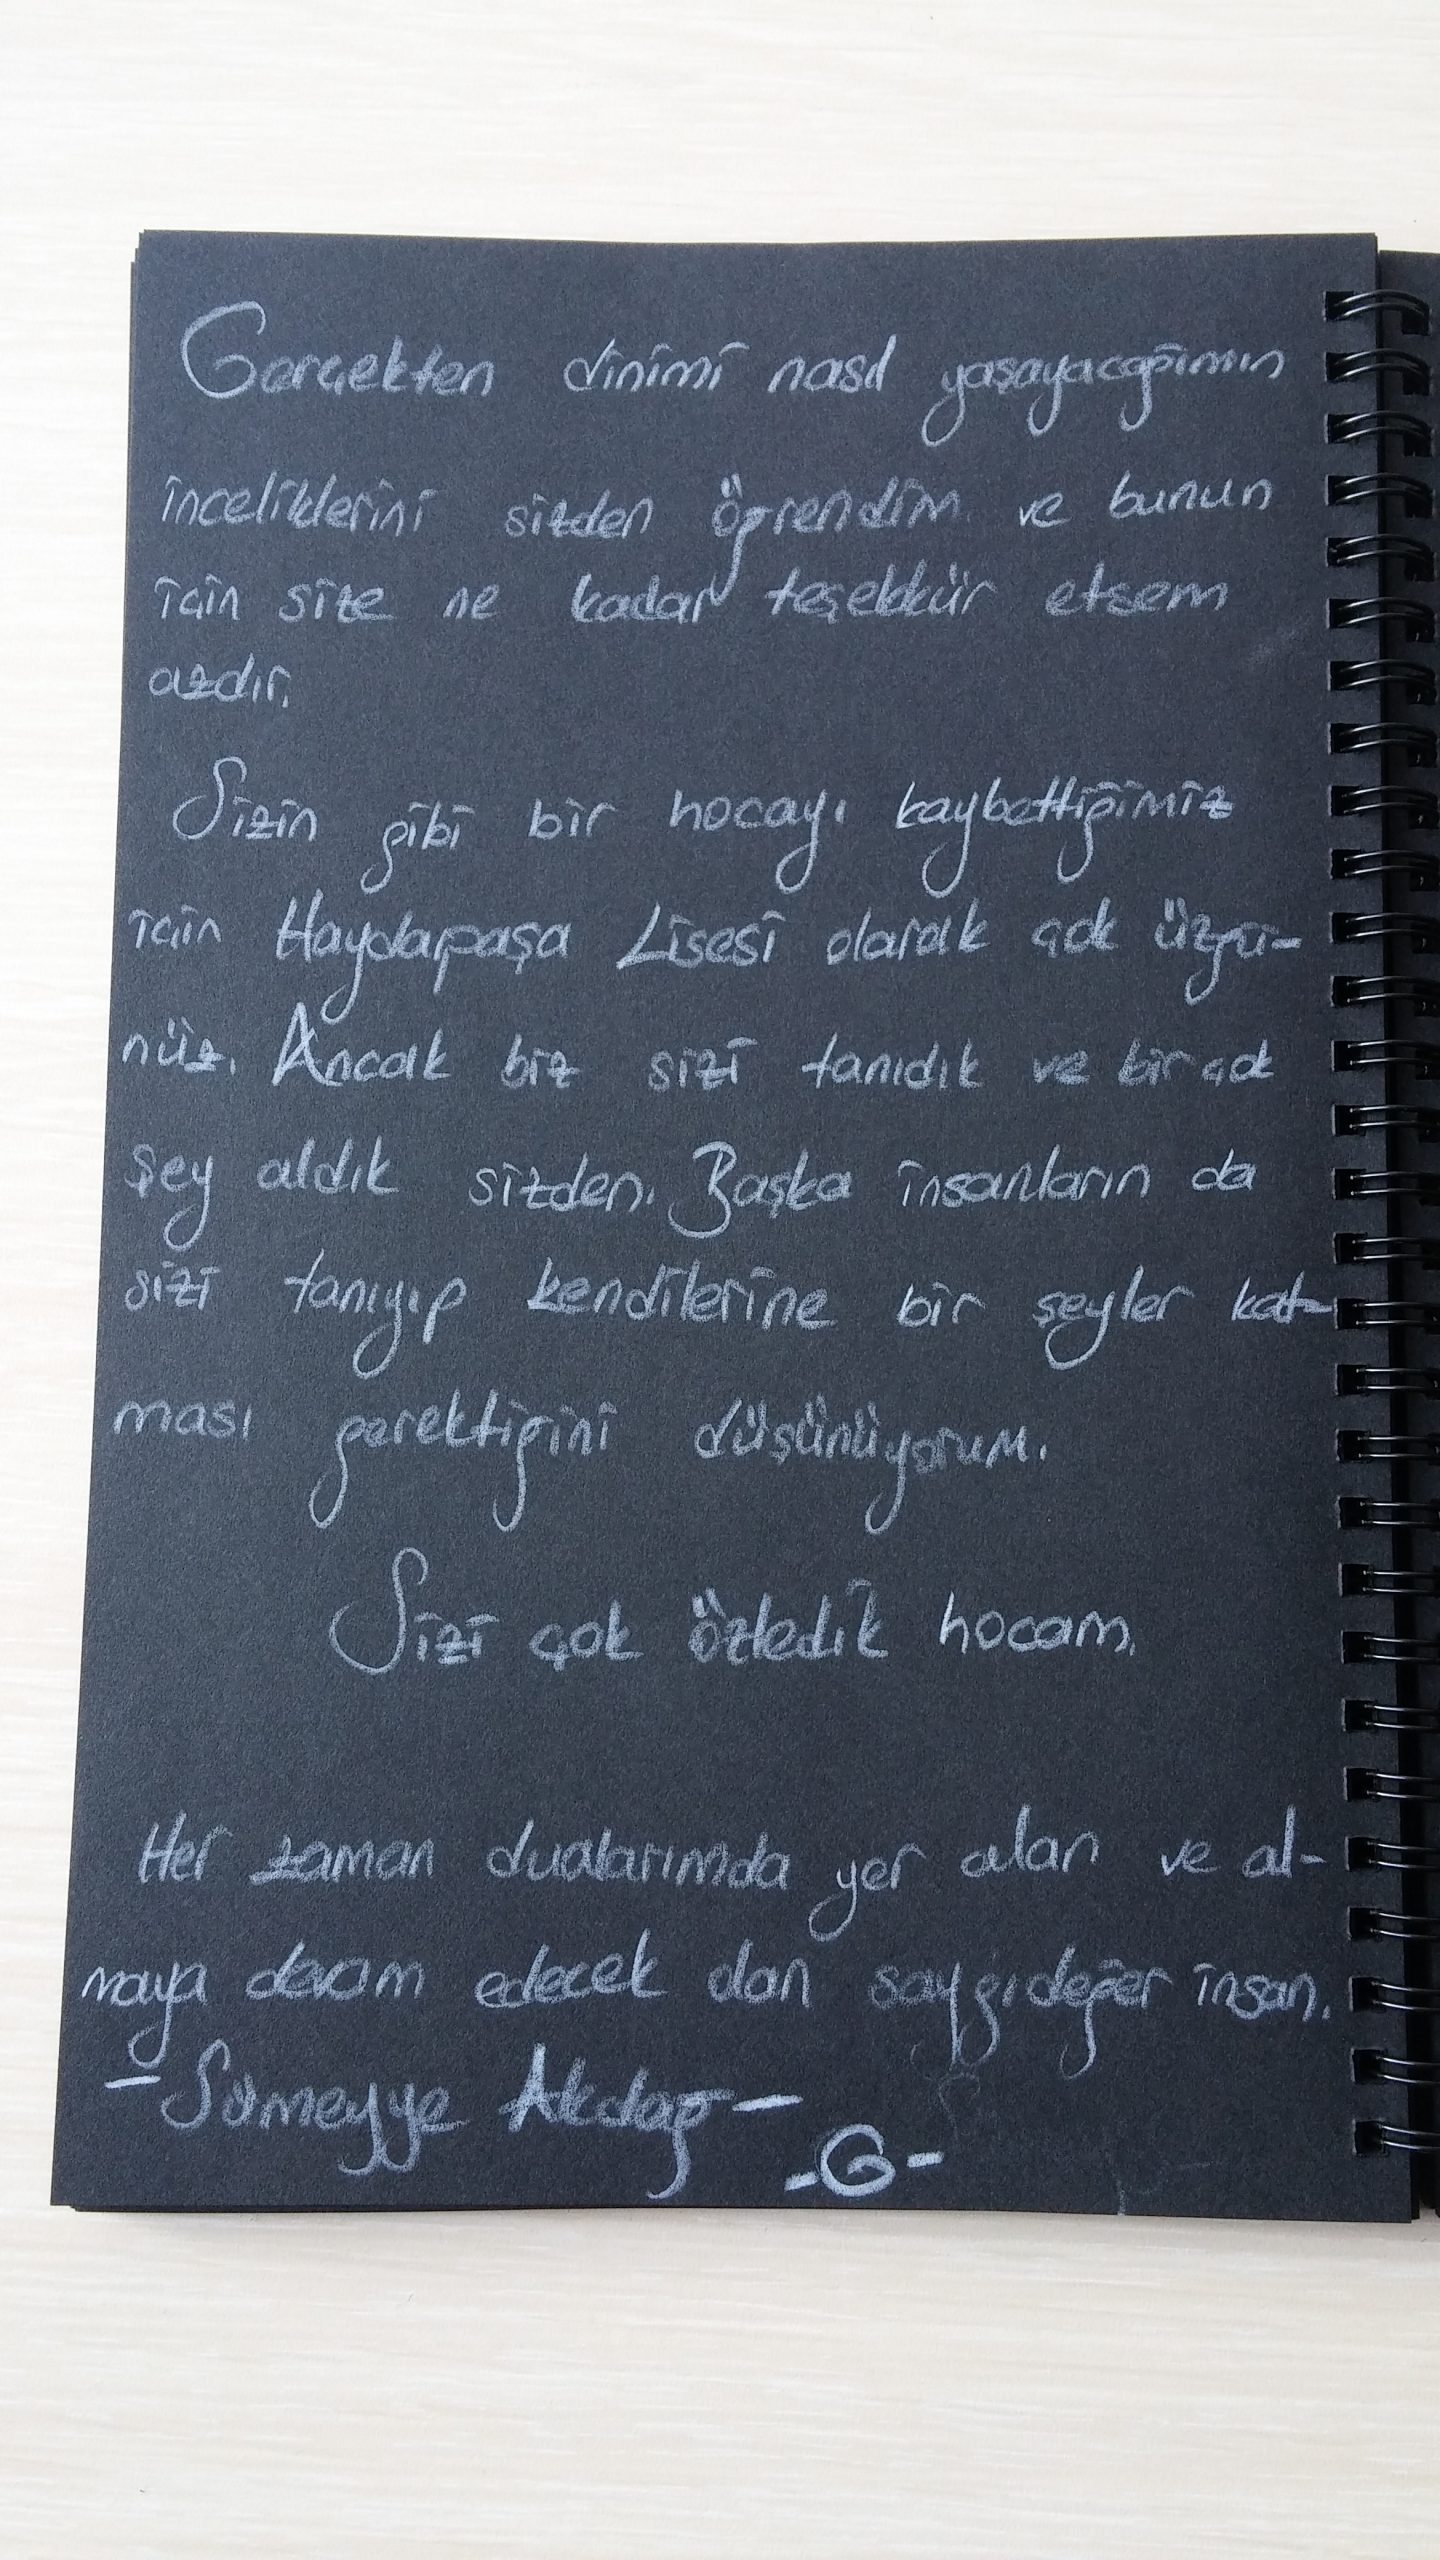 Gerçekten dinimi nasıl yaşayacağımın
inceliklerini sizden öğrendim. ve bunun
için size ne kadar teşekkür etsem
azdır.
Sizin gibi bir hocayı kaybettiğimiz
için Haydapaşa Lisesi olarak çok üzgü-
nüz. Ancak biz sizi tanıdık ve bir çok
şey aldık sizden. Başka insanların da
sizi tanıyıp kendilerine bir şeyler kat-
ması gerektiğini düşünüyorum.
Sizi çok özledik hocam.
Her zaman dualarımda yer alan ve al-
maya devam edecek olan saygıdeğer insan.
- Sümeyye Akdağ -
-G-